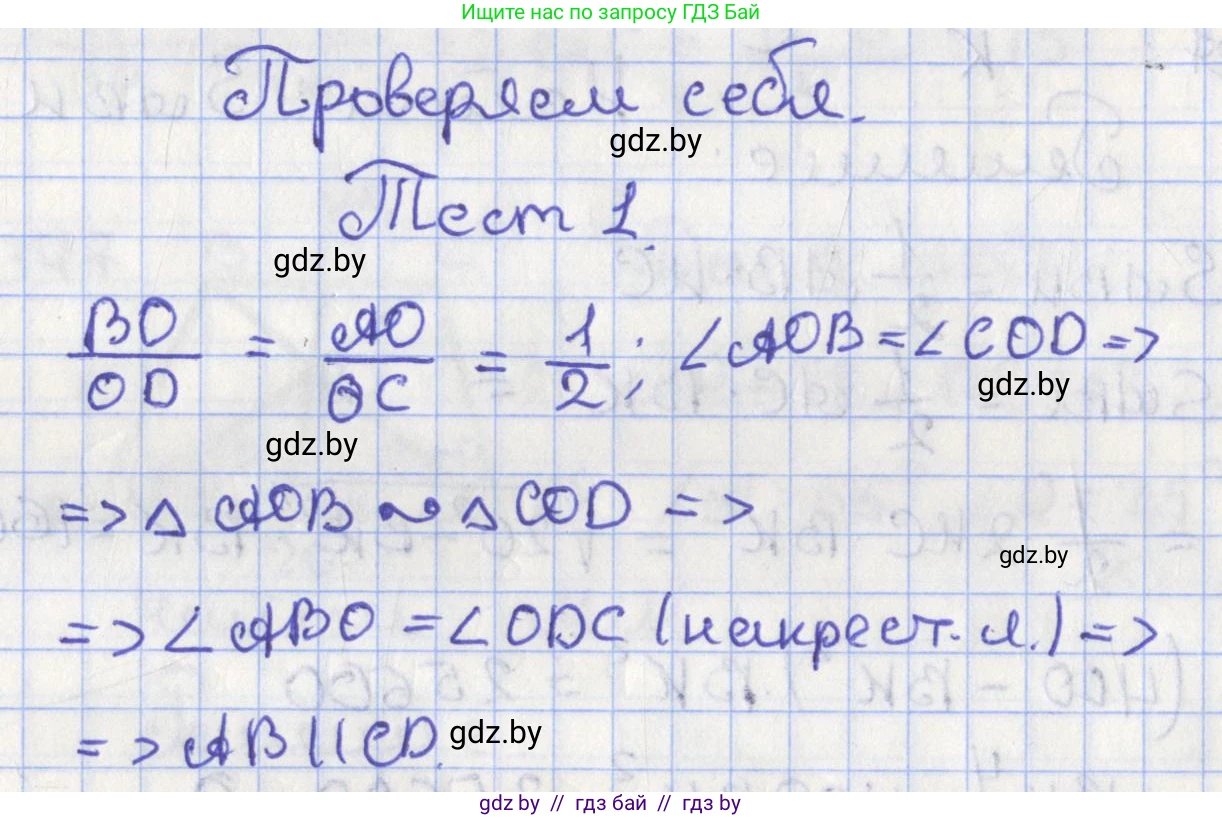 Ищите нас по запросу ГДЗ Бай
Проверяем себя.
gdz.by
Тест 1.
gdz.by
BO/OD = AO/OC = 1/2; ∠AOB = ∠COD =>
gdz.by
gdz.by
=> △ AOB ~ △ COD =>
gdz.by
=> ∠ ABO = ∠ ODC (накрест. л.) =>
=> AB || CD.
gdz.by
gdz.by // гдз бай // гдз by